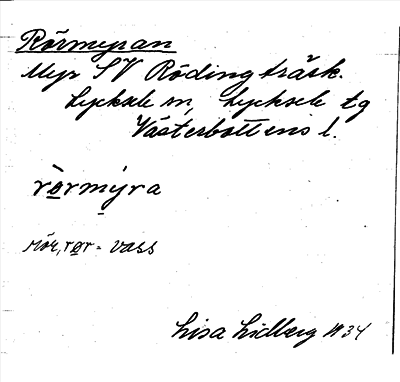 Rörmyran
Myr SV Rödingträsk.
Lycksele sn, Lycksele tg
Västerbottens l.
rørmyra
rör, rør = vass
Lisa Lidberg 1934